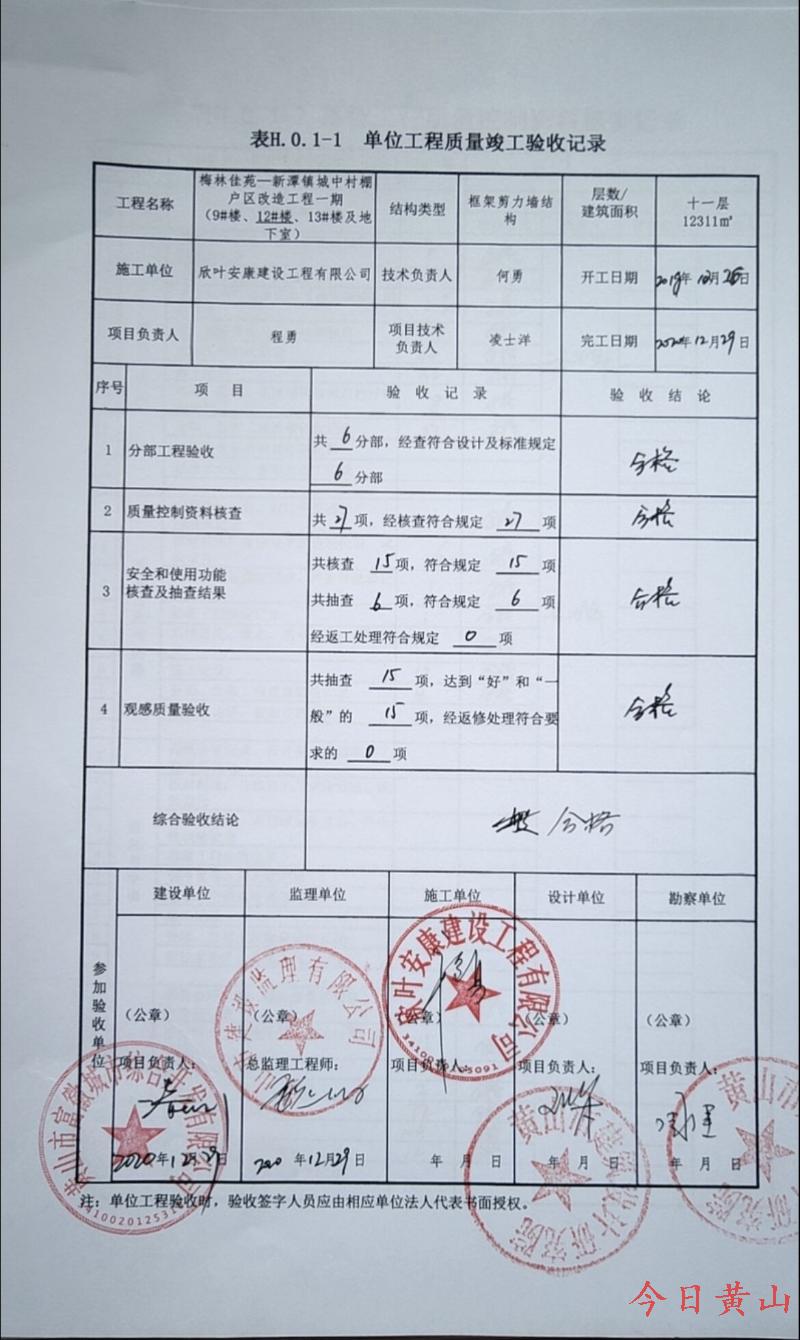 表H.0.1-1 单位工程质量竣工验收记录
工程名称
梅林佳苑—新潭镇城中村棚
户区改造工程一期
(9#楼、12#楼、13#楼及地
下室)
结构类型
框架剪力墙结
构
层数/
建筑面积
十一层
12311㎡
施工单位
欣叶安康建设工程有限公司
技术负责人
何勇
开工日期
2019年12月26日
项目负责人
程勇
项目技术
负责人
凌士洋
完工日期
2020年12月29日
序号
项 目
验 收 记 录
验 收 结 论
1
分部工程验收
共 6 分部,经查符合设计及标准规定
6 分部
合格
2
质量控制资料核查
共 27 项,经核查符合规定 27 项
合格
3
安全和使用功能
核查及抽查结果
共核查 15 项,符合规定 15 项
共抽查 6 项,符合规定 6 项
经返工处理符合规定 0 项
合格
4
观感质量验收
共抽查 15 项,达到“好”和“一
般”的 15 项,经返修处理符合要
求的 0 项
合格
综合验收结论
合格
参加验收单位
建设单位
监理单位
施工单位
设计单位
勘察单位
(公章)
(公章)
(公章)
(公章)
(公章)
项目负责人:
总监理工程师:
项目负责人:
项目负责人:
项目负责人:
2020年12月29日
2020年12月29日
年 月 日
年 月 日
年 月 日
欣叶安康建设工程有限公司
监理有限公司
黄山市
有限公司
黄山市
设计研究院
黄山
究院
注:单位工程验收时,验收签字人员应由相应单位法人代表书面授权。
今日黄山